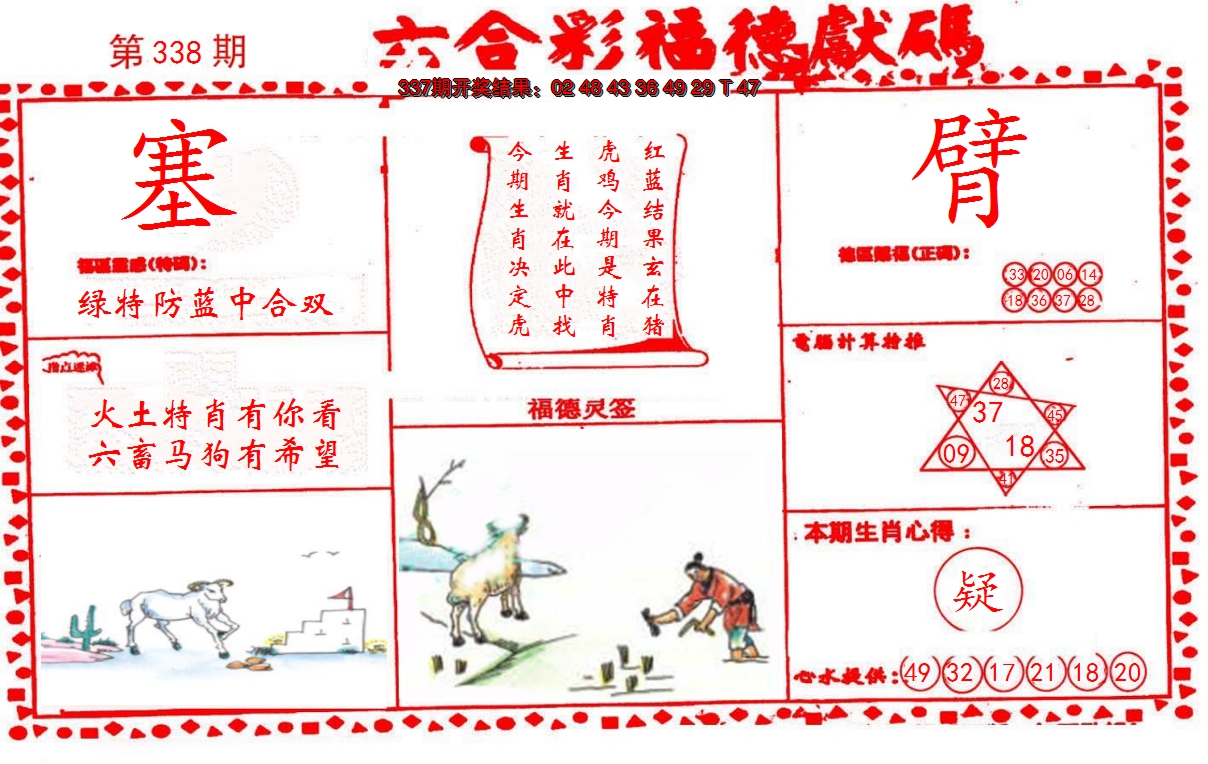 第 338 期
六合彩福德獻碼
337期开奖结果：02 48 43 36 49 29 T 47
塞
(特碼)：
绿特防蓝中合双
火土特肖有你看
六畜马狗有希望
红蓝结果玄在猪
虎鸡今期是特肖
生肖就在此中找
今期生肖决定虎
福德灵签
臂
(正碼)：
33 20 06 14
18 36 37 28
電腦计算精推
28
47 37 45
09 18 35
41
本期生肖心得：
疑
心水提供：49 32 17 21 18 20